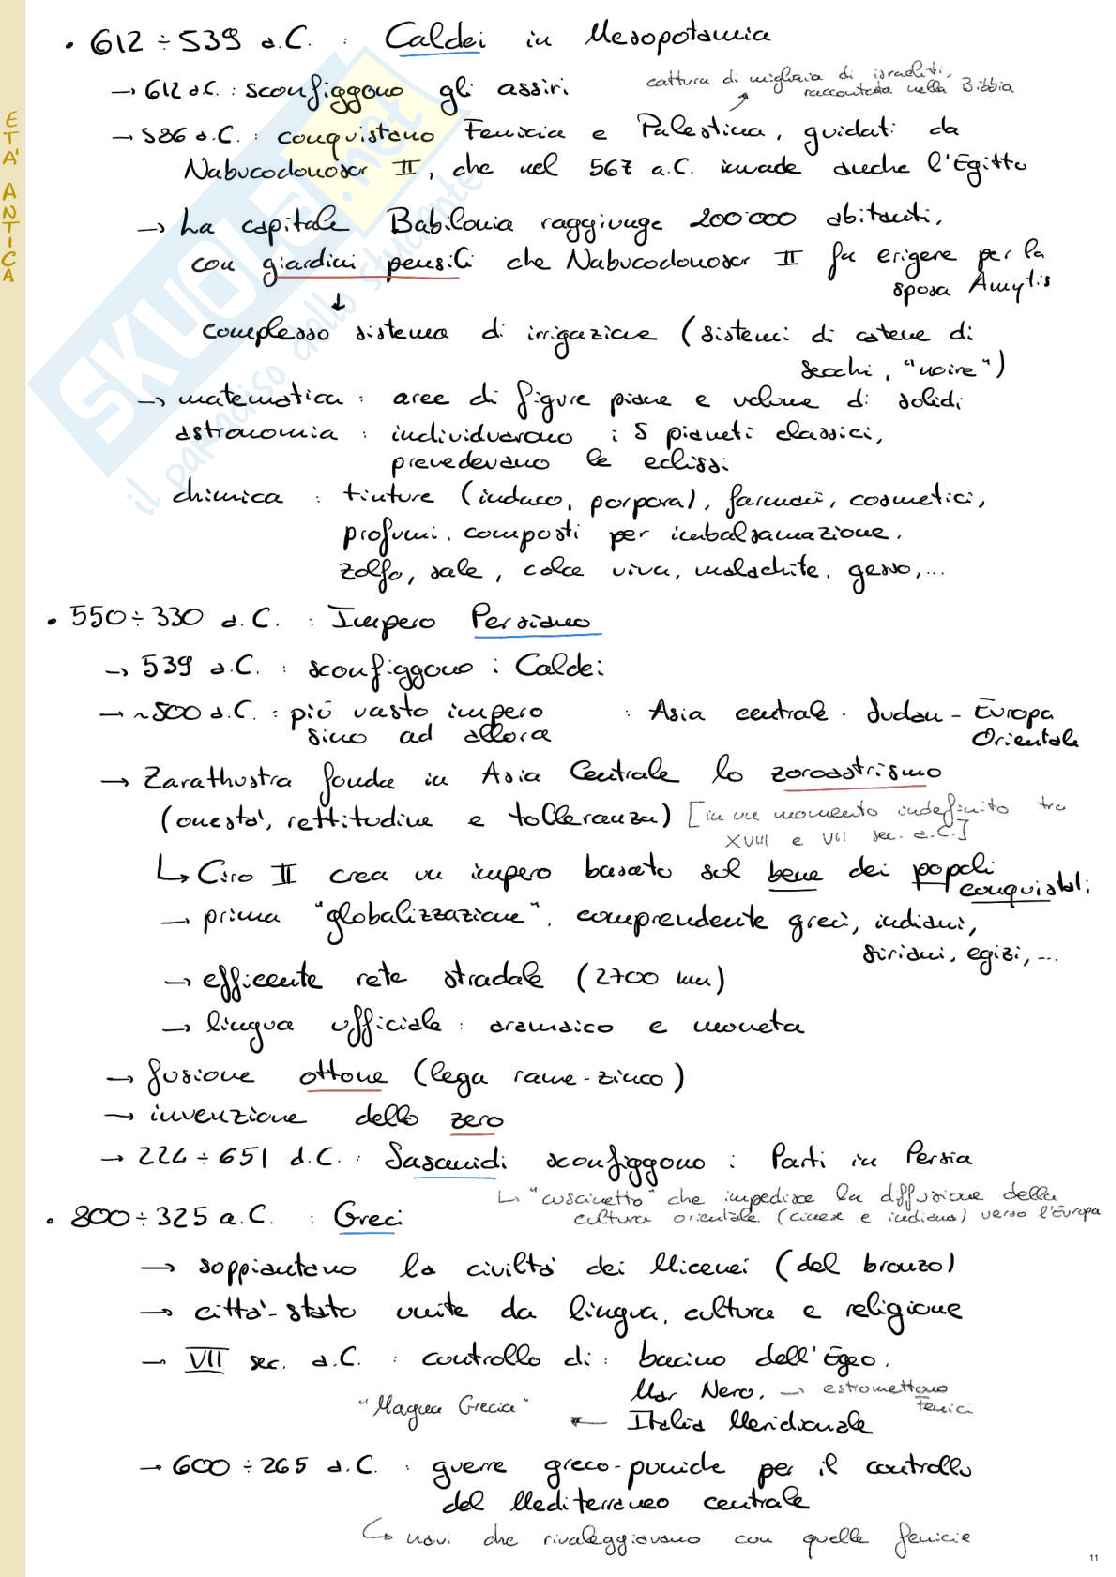 ETÀ ANTICA
• 612 ÷ 539 a.C. : Caldei in Mesopotamia
→ 612 a.C. : sconfiggono gli assiri
cattura di migliaia di israeliti,
raccontata nella Bibbia
→ 586 a.C. : conquistano Fenicia e Palestina, guidati da
Nabucodonosor II, che nel 567 a.C. invade anche l'Egitto
→ La capitale Babilonia raggiunge 200'000 abitanti,
con giardini pensili che Nabucodonosor II fa erigere per la
sposa Amytis
↓
complesso sistema di irrigazione (sistemi di catene di
secchi, "noire")
→ matematica : aree di figure piane e volume di solidi
astronomia : individuarono i 5 pianeti classici,
prevedevano le eclissi
chimica : tinture (indaco, porpora), farmaci, cosmetici,
profumi, composti per imbalsamazione,
zolfo, sale, calce viva, malachite, gesso,...
• 550 ÷ 330 a.C. : Impero Persiano
→ 539 a.C. : sconfiggono i Caldei
→ ~500 a.C. : più vasto impero : Asia centrale - Sudan - Europa
sino ad allora Orientale
→ Zarathustra fonda in Asia Centrale lo zoroastrismo
(onestà, rettitudine e tolleranza) [in un momento indefinito tra
XVIII e VII sec. a.C.]
↳ Ciro II crea un impero basato sul bene dei popoli
conquistati
→ prima "globalizzazione", comprendente greci, indiani,
siriani, egizi, ...
→ efficente rete stradale (2700 km)
→ lingua ufficiale : aramaico e moneta
→ fusione ottone (lega rame-zinco)
→ invenzione dello zero
→ 224 ÷ 651 d.C. : Sasanidi sconfiggono i Parti in Persia
↳ "cuscinetto" che impedisce la diffusione della
cultura orientale (cinese e indiana) verso l'Europa
• 800 ÷ 325 a.C. : Greci
→ soppiantano la civiltà dei Micenei (del bronzo)
→ città-stato unite da lingua, cultura e religione
→ VII sec. a.C. : controllo di : bacino dell'Egeo,
Mar Nero, → estromettono
fenici
"Magna Grecia" ← Italia Meridionale
→ 600 ÷ 265 a.C. : guerre greco-puniche per il controllo
del Mediterraneo centrale
↳ navi che rivaleggiavano con quelle fenicie
11
SKUOLA.net
il paradiso dello studente